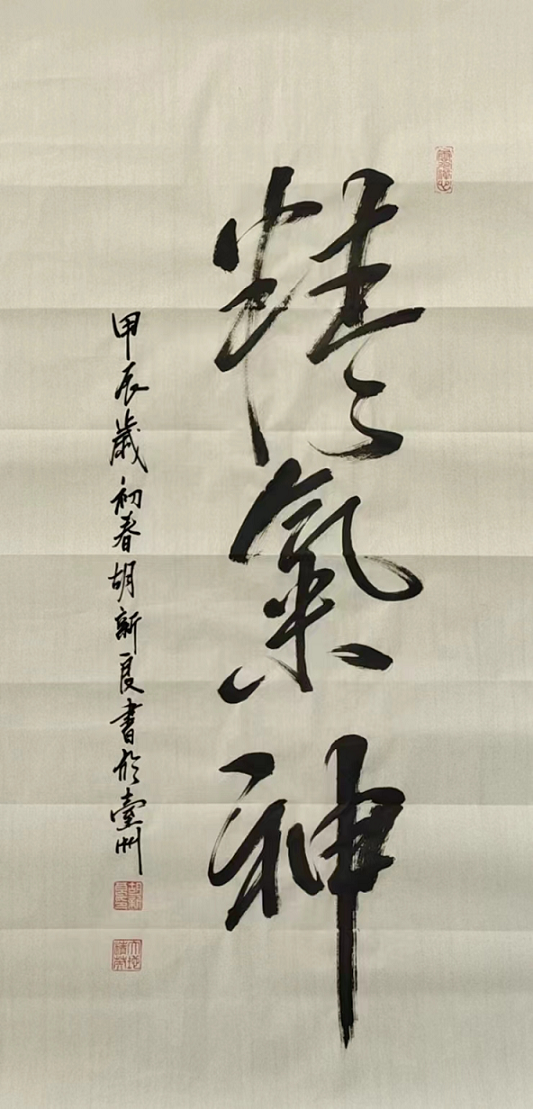 精氣神
甲辰歲初春胡新良書於臺州